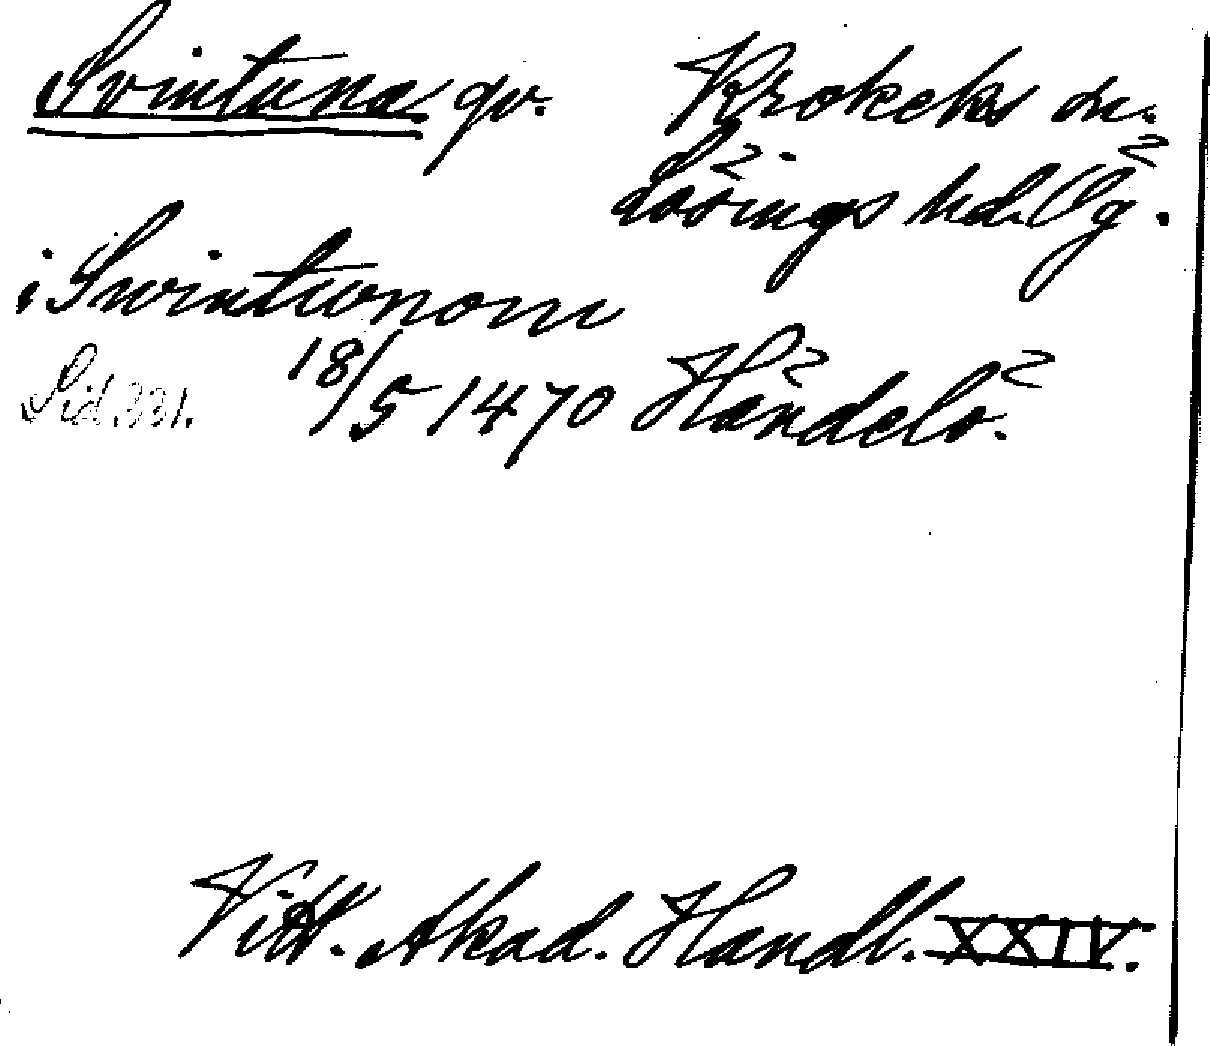 Svintuna gv. Krokeks sn.
Lösings hd. Ög.
i Swintunom
Sid. 331. 18/5 1470 Händelö.
Vitt. Akad. Handl. XXIV.